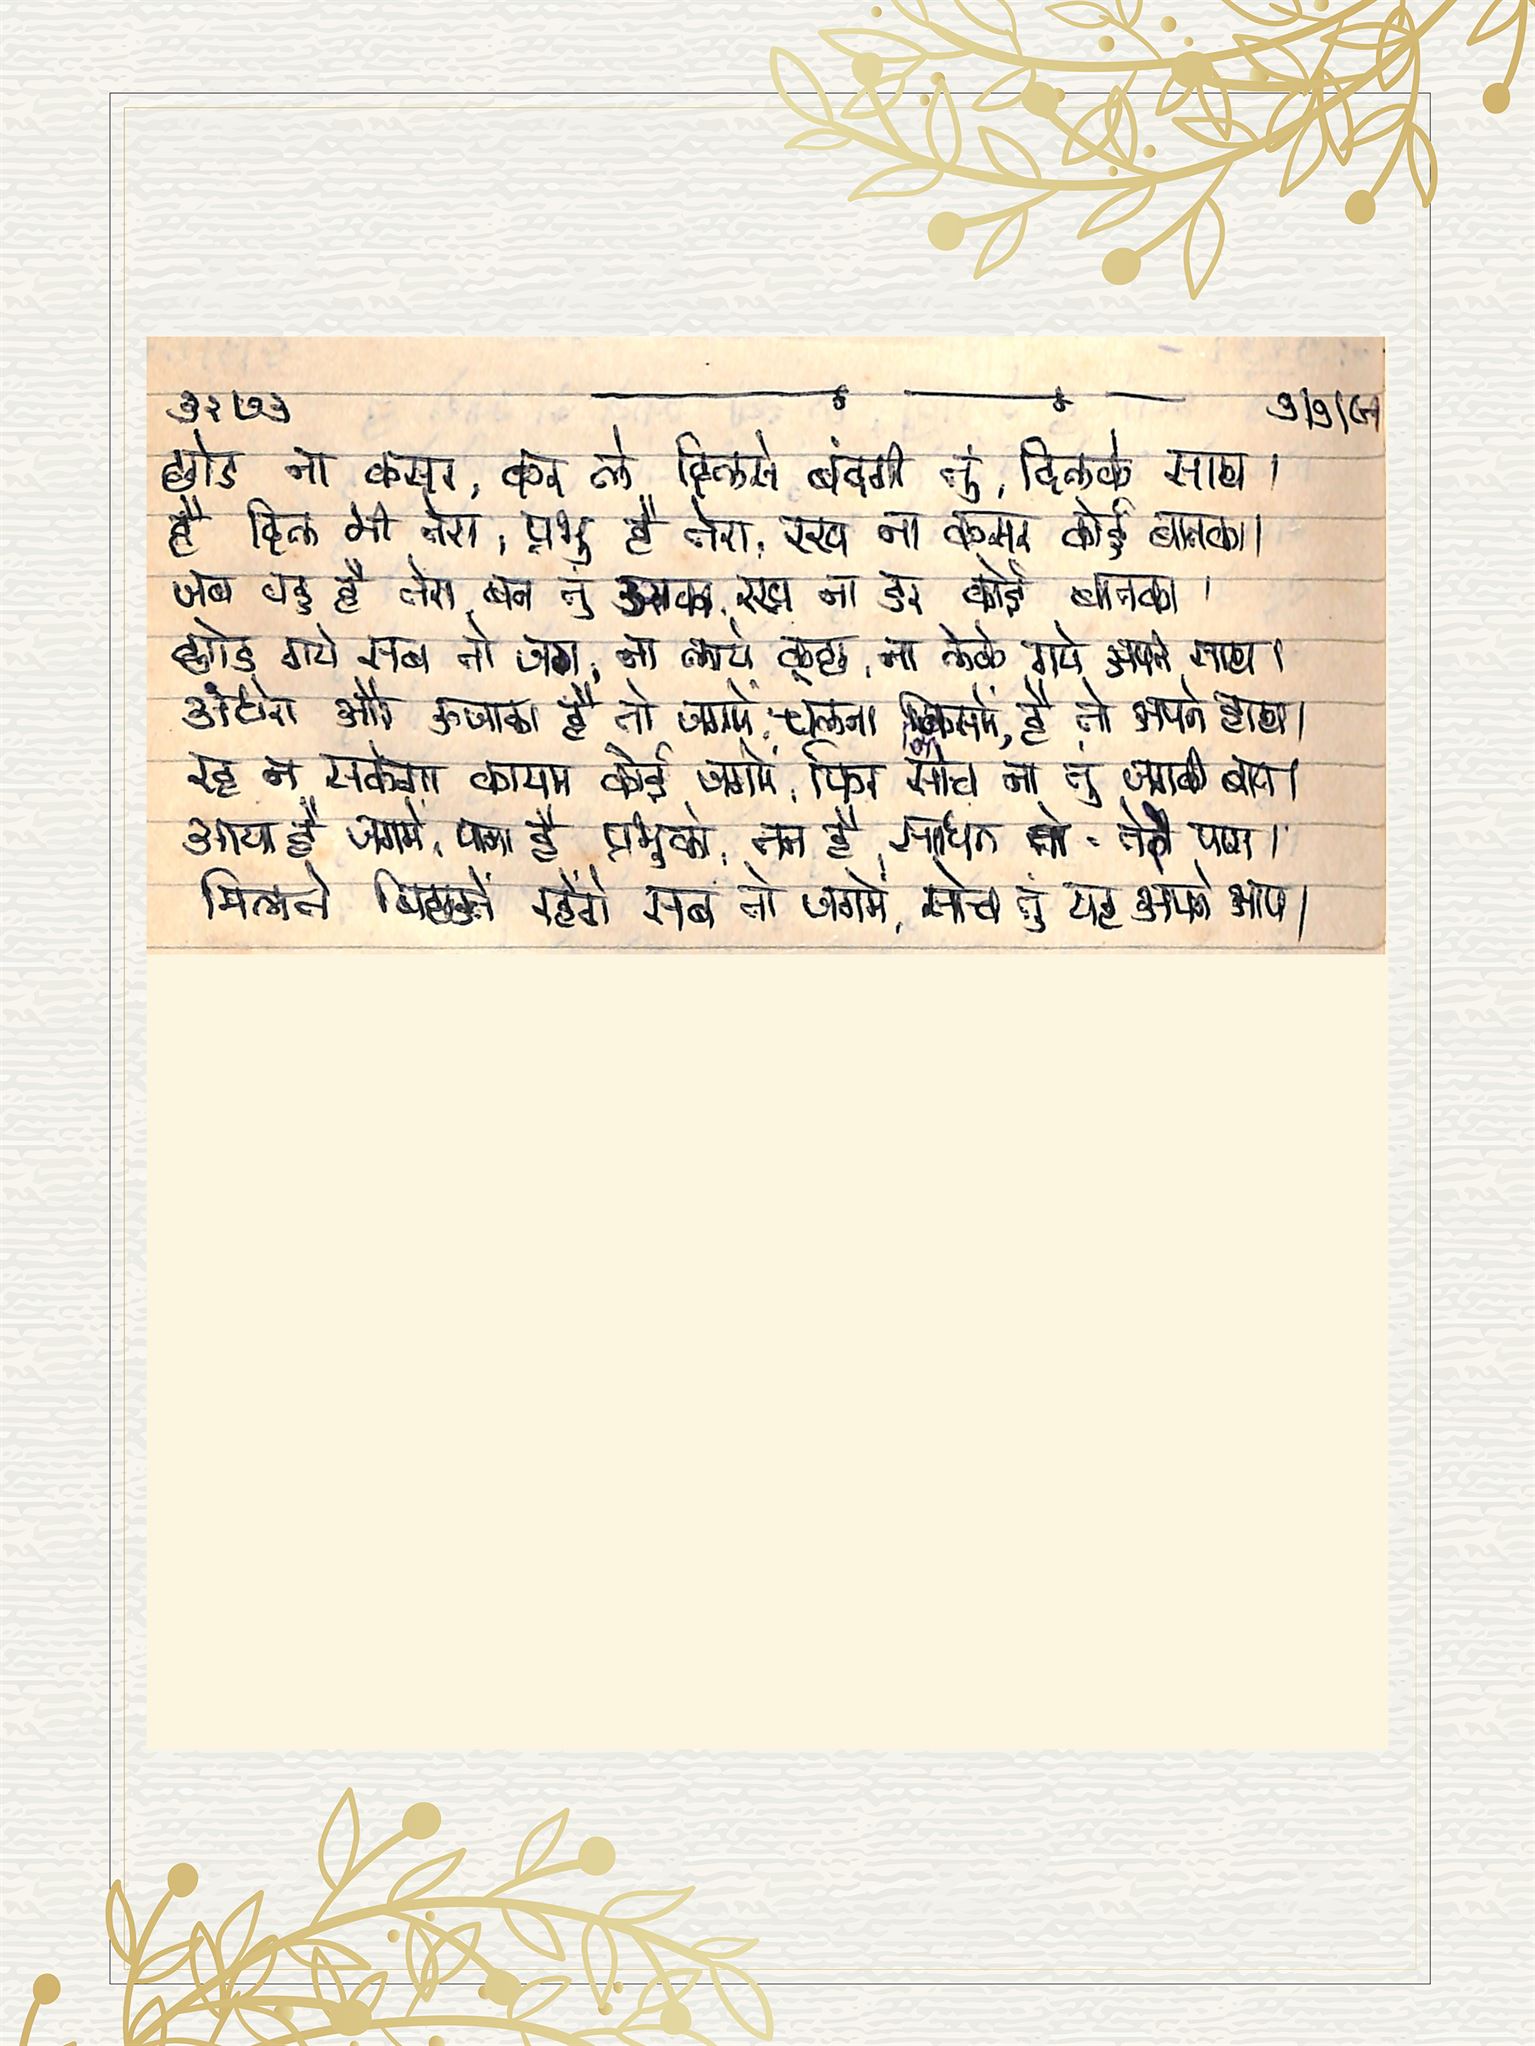 ३२७३
छोड ना कसर, कर ले दिलसे बंदगी तुं, दिलके साथ।
है दिल भी तेरा, प्रभु है तेरा, रख ना कसर कोई बातका।
जब वह है तेरा, बन तुं उसका, रख ना डर कोई बातका।
छोड गये सब तो जग, ना लाये कूछ, ना लेके गये अपने साथ।
अंधेरा और ऊजाला है तो जगमें, चलना किसमें, है तो अपने हाथ।
रह न सकेगा कायम कोई जगमें, फिर सोच ना तुं जगकी बात।
आया है जगमें, पाना है प्रभुको, तन है साधन तो तेरे पास।
मिलते बिछडते रहेंगे सब तो जगमें, सोच तुं यह अपने आप।